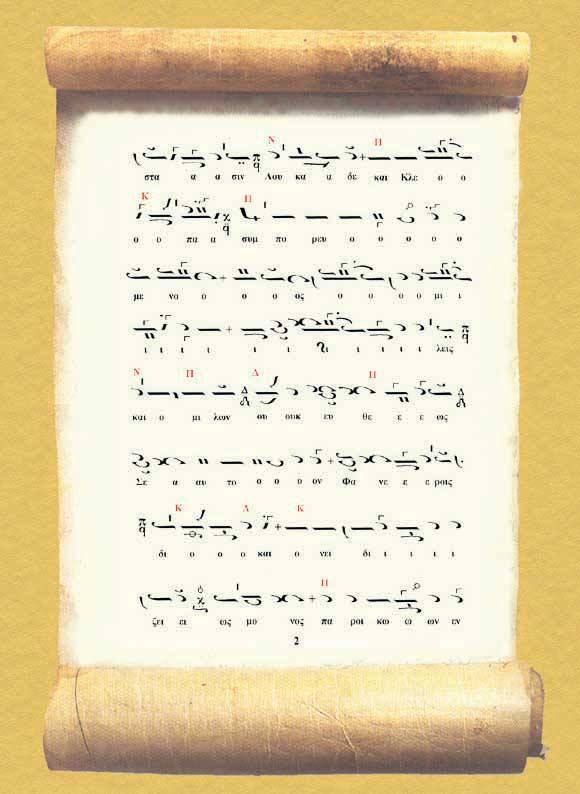 Ν Π
στα α α σιν Λου κα α δε και Κλε ο ο
Κ Π
ο ο πα α συμ πο ρευ ο ο ο ο ο
με νο ο ο ο ος ο ο ο ο μι ι
ι ι ι ι ι ι ι ι ι ι ι λεις
Ν Π Δ Π
και ο μι λων ου ουκ ευ θε ε ε ως
Σε α αυ το ο ο ο ον Φα νε ε ε ροις
Κ Δ Κ
δι ο ο ο και ο νει δι ι ι ι
Π
ζει ει ως μο νος πα ροι κω ω ων εν
2